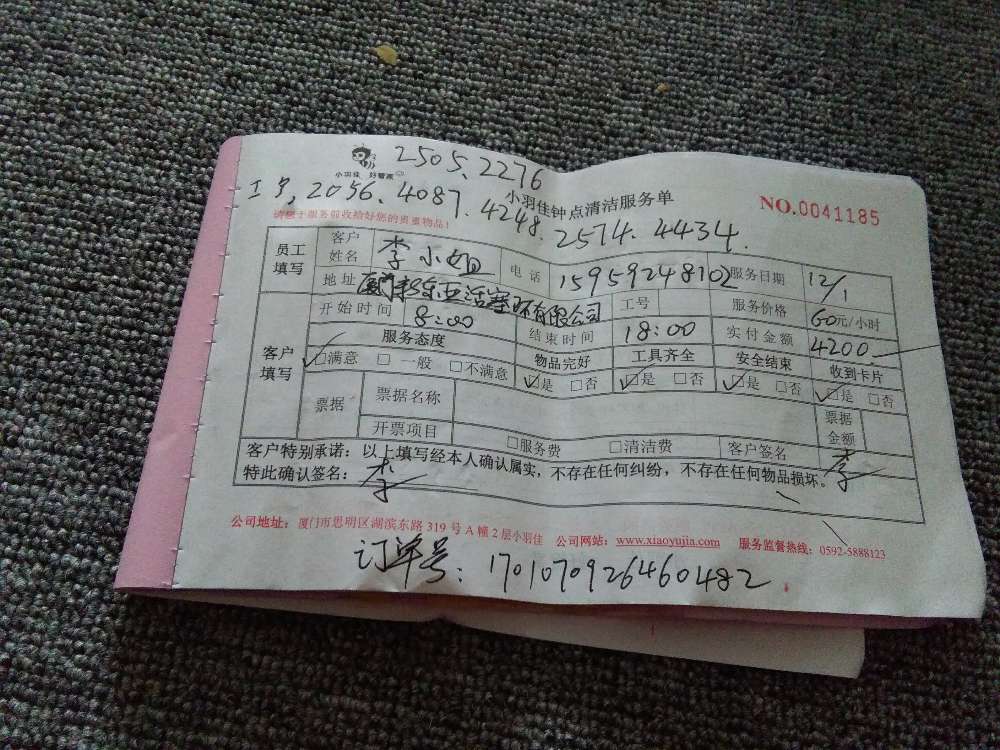 2505.2276
小羽佳 好管家
工号,2056.4087.4248.2574.4434.
小羽佳钟点清洁服务单
NO.0041185
请您于服务前收拾好您的贵重物品!
员工填写 客户姓名 李小姐 电话 15959248102 服务日期 12/1
地址 有限公司 工号 服务价格 60元/小时
客户填写 开始时间 8:00 结束时间 18:00 实付金额 4200
服务态度 物品完好 工具齐全 安全结束 收到卡片
□满意 □一般 □不满意 □是 □否 □是 □否 □是 □否 □是 □否
票据 票据名称 票据金额
开票项目 □服务费 □清洁费 客户签名 李
客户特别承诺:以上填写经本人确认属实,不存在任何纠纷,不存在任何物品损坏。
特此确认签名: 李
公司地址:厦门市思明区湖滨东路319号A幢2层小羽佳 公司网站:www.xiaoyujia.com 服务监督热线:0592-5888123
订单号:1701070926460482